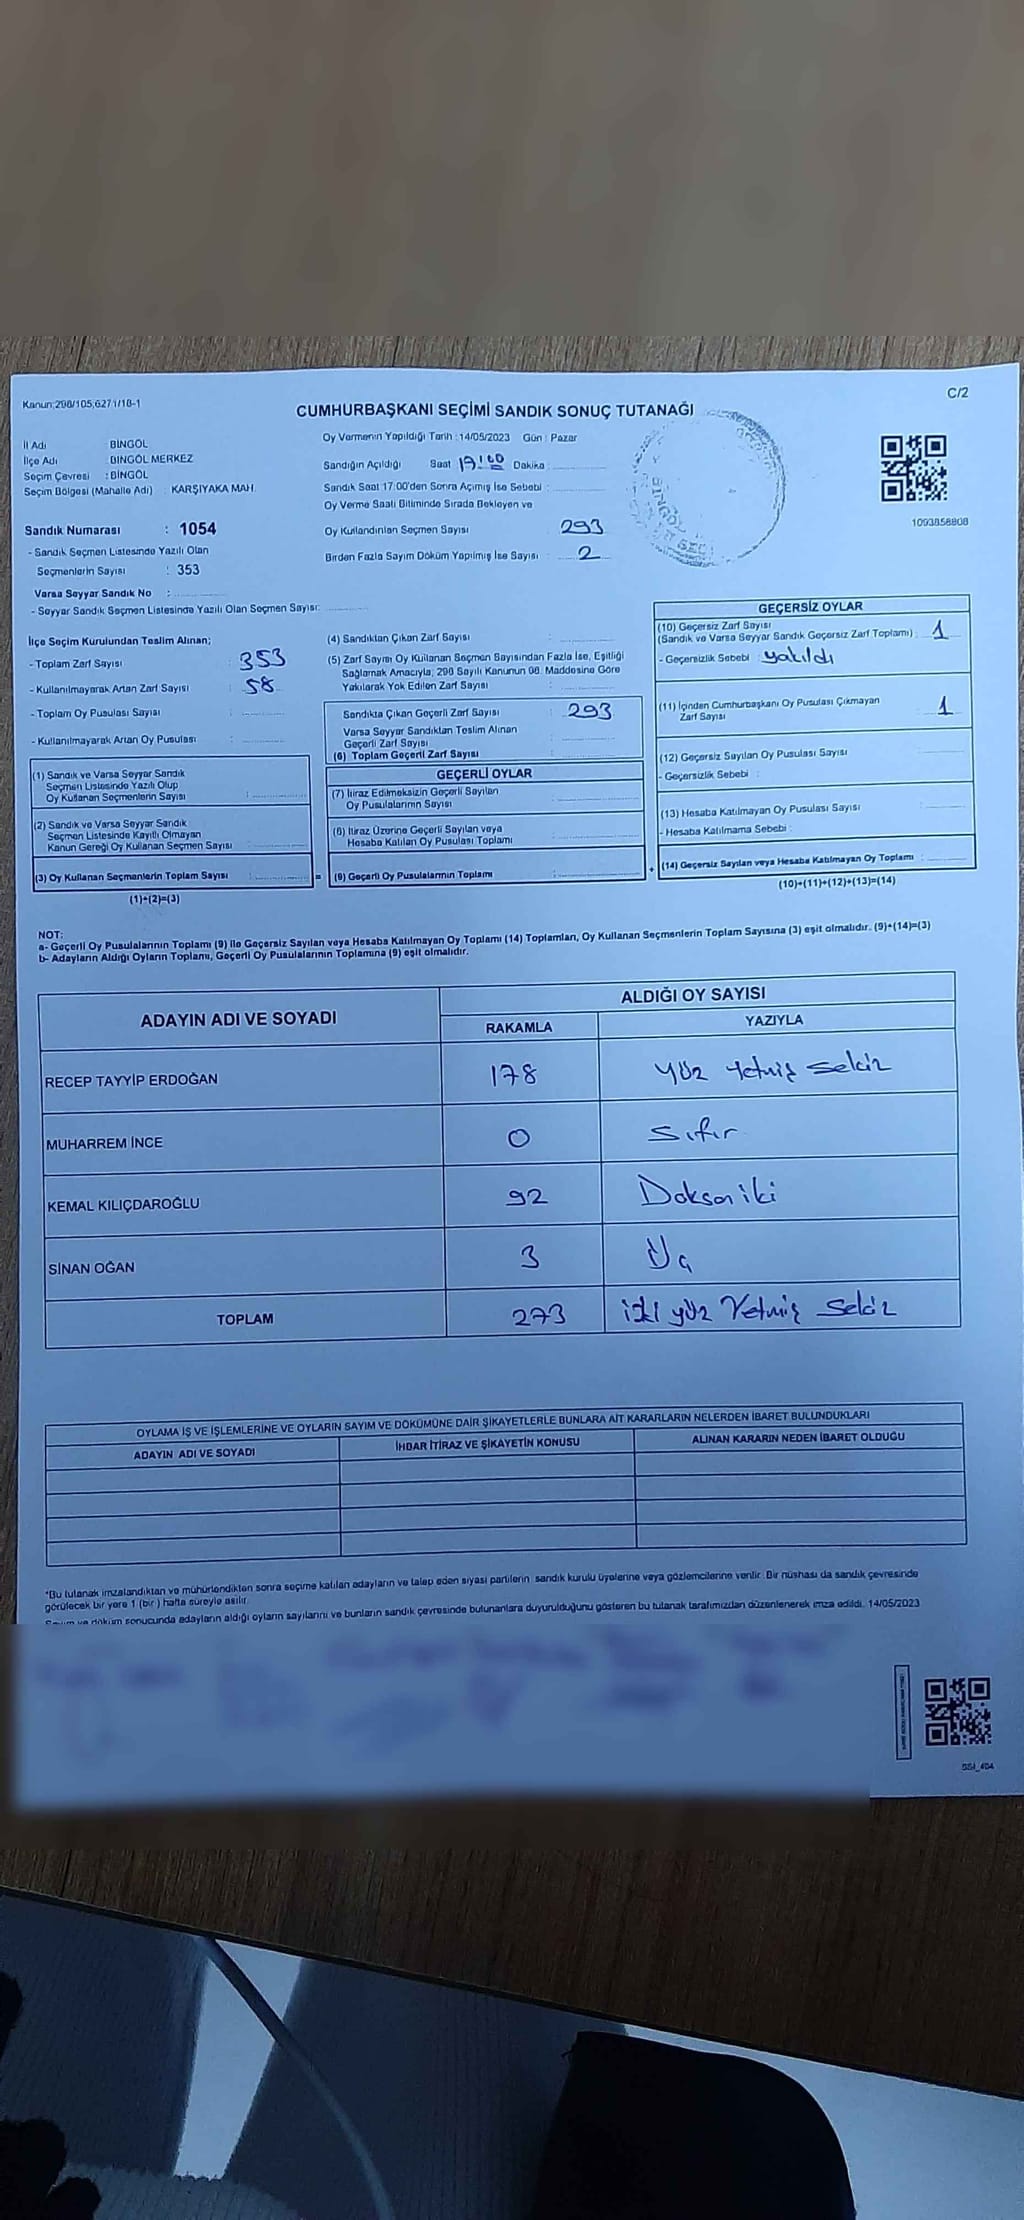 Kanun:298/105,6271/18-1
C/2
CUMHURBAŞKANI SEÇİMİ SANDIK SONUÇ TUTANAĞI
İl Adı : BİNGÖL
İlçe Adı : BİNGÖL MERKEZ
Seçim Çevresi : BİNGÖL
Seçim Bölgesi (Mahalle Adı) : KARŞIYAKA MAH.
Sandık Numarası : 1054
- Sandık Seçmen Listesinde Yazılı Olan
Seçmenlerin Sayısı : 353
Varsa Seyyar Sandık No :
- Seyyar Sandık Seçmen Listesinde Yazılı Olan Seçmen Sayısı:
Oy Vermenin Yapıldığı Tarih : 14/05/2023 Gün : Pazar
Sandığın Açıldığı Saat 19:00 Dakika :
Sandık Saat 17:00'den Sonra Açılmış İse Sebebi :
Oy Verme Saati Bitiminde Sırada Bekleyen ve
Oy Kullandırılan Seçmen Sayısı : 293
Birden Fazla Sayım Döküm Yapılmış İse Sayısı : 2
BİNGÖL
1093858808
İlçe Seçim Kurulundan Teslim Alınan;
- Toplam Zarf Sayısı : 353
- Kullanılmayarak Artan Zarf Sayısı : 58
- Toplam Oy Pusulası Sayısı :
- Kullanılmayarak Artan Oy Pusulası :
(1) Sandık ve Varsa Seyyar Sandık
Seçmen Listesinde Yazılı Olup
Oy Kullanan Seçmenlerin Sayısı :
(2) Sandık ve Varsa Seyyar Sandık
Seçmen Listesinde Kayıtlı Olmayan
Kanun Gereği Oy Kullanan Seçmen Sayısı :
(3) Oy Kullanan Seçmenlerin Toplam Sayısı :
(1)+(2)=(3)
(4) Sandıktan Çıkan Zarf Sayısı :
(5) Zarf Sayısı Oy Kullanan Seçmen Sayısından Fazla İse, Eşitliği
Sağlamak Amacıyla; 298 Sayılı Kanunun 98. Maddesine Göre
Yakılarak Yok Edilen Zarf Sayısı :
Sandıkta Çıkan Geçerli Zarf Sayısı : 293
Varsa Seyyar Sandıktan Teslim Alınan
Geçerli Zarf Sayısı
(6) Toplam Geçerli Zarf Sayısı :
=
GEÇERLİ OYLAR
(7) İtiraz Edilmeksizin Geçerli Sayılan
Oy Pusulalarının Sayısı :
(8) İtiraz Üzerine Geçerli Sayılan veya
Hesaba Katılan Oy Pusulası Toplamı :
(9) Geçerli Oy Pusulalarının Toplamı :
+
GEÇERSİZ OYLAR
(10) Geçersiz Zarf Sayısı
(Sandık ve Varsa Seyyar Sandık Geçersiz Zarf Toplamı) : 1
- Geçersizlik Sebebi : yakıldı
(11) İçinden Cumhurbaşkanı Oy Pusulası Çıkmayan
Zarf Sayısı : 1
(12) Geçersiz Sayılan Oy Pusulası Sayısı
- Geçersizlik Sebebi :
(13) Hesaba Katılmayan Oy Pusulası Sayısı :
- Hesaba Katılmama Sebebi :
(14) Geçersiz Sayılan veya Hesaba Katılmayan Oy Toplamı :
(10)+(11)+(12)+(13)=(14)
NOT:
a- Geçerli Oy Pusulalarının Toplamı (9) ile Geçersiz Sayılan veya Hesaba Katılmayan Oy Toplamı (14) Toplamları, Oy Kullanan Seçmenlerin Toplam Sayısına (3) eşit olmalıdır. (9)+(14)=(3)
b- Adayların Aldığı Oyların Toplamı, Geçerli Oy Pusulalarının Toplamına (9) eşit olmalıdır.
ADAYIN ADI VE SOYADI
ALDIĞI OY SAYISI
RAKAMLA YAZIYLA
RECEP TAYYİP ERDOĞAN 178 Yüz Yetmiş Sekiz
MUHARREM İNCE 0 Sıfır
KEMAL KILIÇDAROĞLU 92 Doksan iki
SİNAN OĞAN 3 Üç
TOPLAM 273 iki yüz Yetmiş Sekiz
OYLAMA İŞ VE İŞLEMLERİNE VE OYLARIN SAYIM VE DÖKÜMÜNE DAİR ŞİKAYETLERLE BUNLARA AİT KARARLARIN NELERDEN İBARET BULUNDUKLARI
ADAYIN ADI VE SOYADI İHBAR İTİRAZ VE ŞİKAYETİN KONUSU ALINAN KARARIN NEDEN İBARET OLDUĞU
*Bu tutanak imzalandıktan ve mühürlendikten sonra seçime katılan adayların ve talep eden siyasi partilerin sandık kurulu üyelerine veya gözlemcilerine verilir. Bir nüshası da sandık çevresinde
görülecek bir yere 1 (bir) hafta süreyle asılır.
Sayım ve döküm sonucunda adayların aldığı oyların sayılarını ve bunların sandık çevresinde bulunanlara duyurulduğunu gösteren bu tutanak tarafımızdan düzenlenerek imza edildi. 14/05/2023